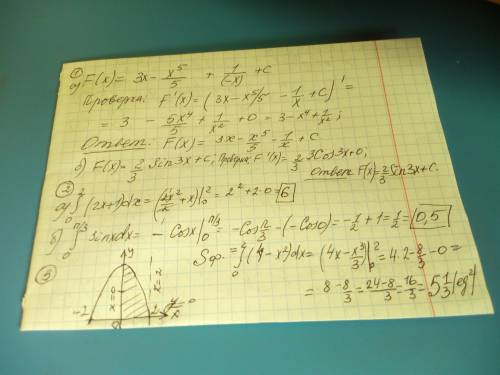 ① а) F(x) = 3x - x⁵/5 + 1/(-x) + C
Проверка: F'(x) = (3x - x⁵/5 - 1/x + C)' =
= 3 - 5x⁴/5 + 1/x² + 0 = 3 - x⁴ + 1/x²;
Ответ. F(x) = 3x - x⁵/5 - 1/x + C
б) F(x) = 2/3 Sin3x + C; Проверка F'(x) = 2/3 3Cos3x + 0,
Ответ F(x) = 2/3 Sin3x + C.
② а) ∫₀² (2x+1)dx = (2x²/2 + x)|₀² = 2² + 2 - 0 = 6
б) ∫₀^π/3 sinxdx = - Cosx|₀^π/3 = -Cos π/3 - (-Cos0) = -1/2 + 1 = 1/2 = 0,5
③ Sф. = ∫₀² (4 - x²)dx = (4x - x³/3)|₀² = 4·2 - 8/3 - 0 =
= 8 - 8/3 = 24-8/3 = 16/3 = 5 1/3 (ед²)
x=0
x=2
-2
2